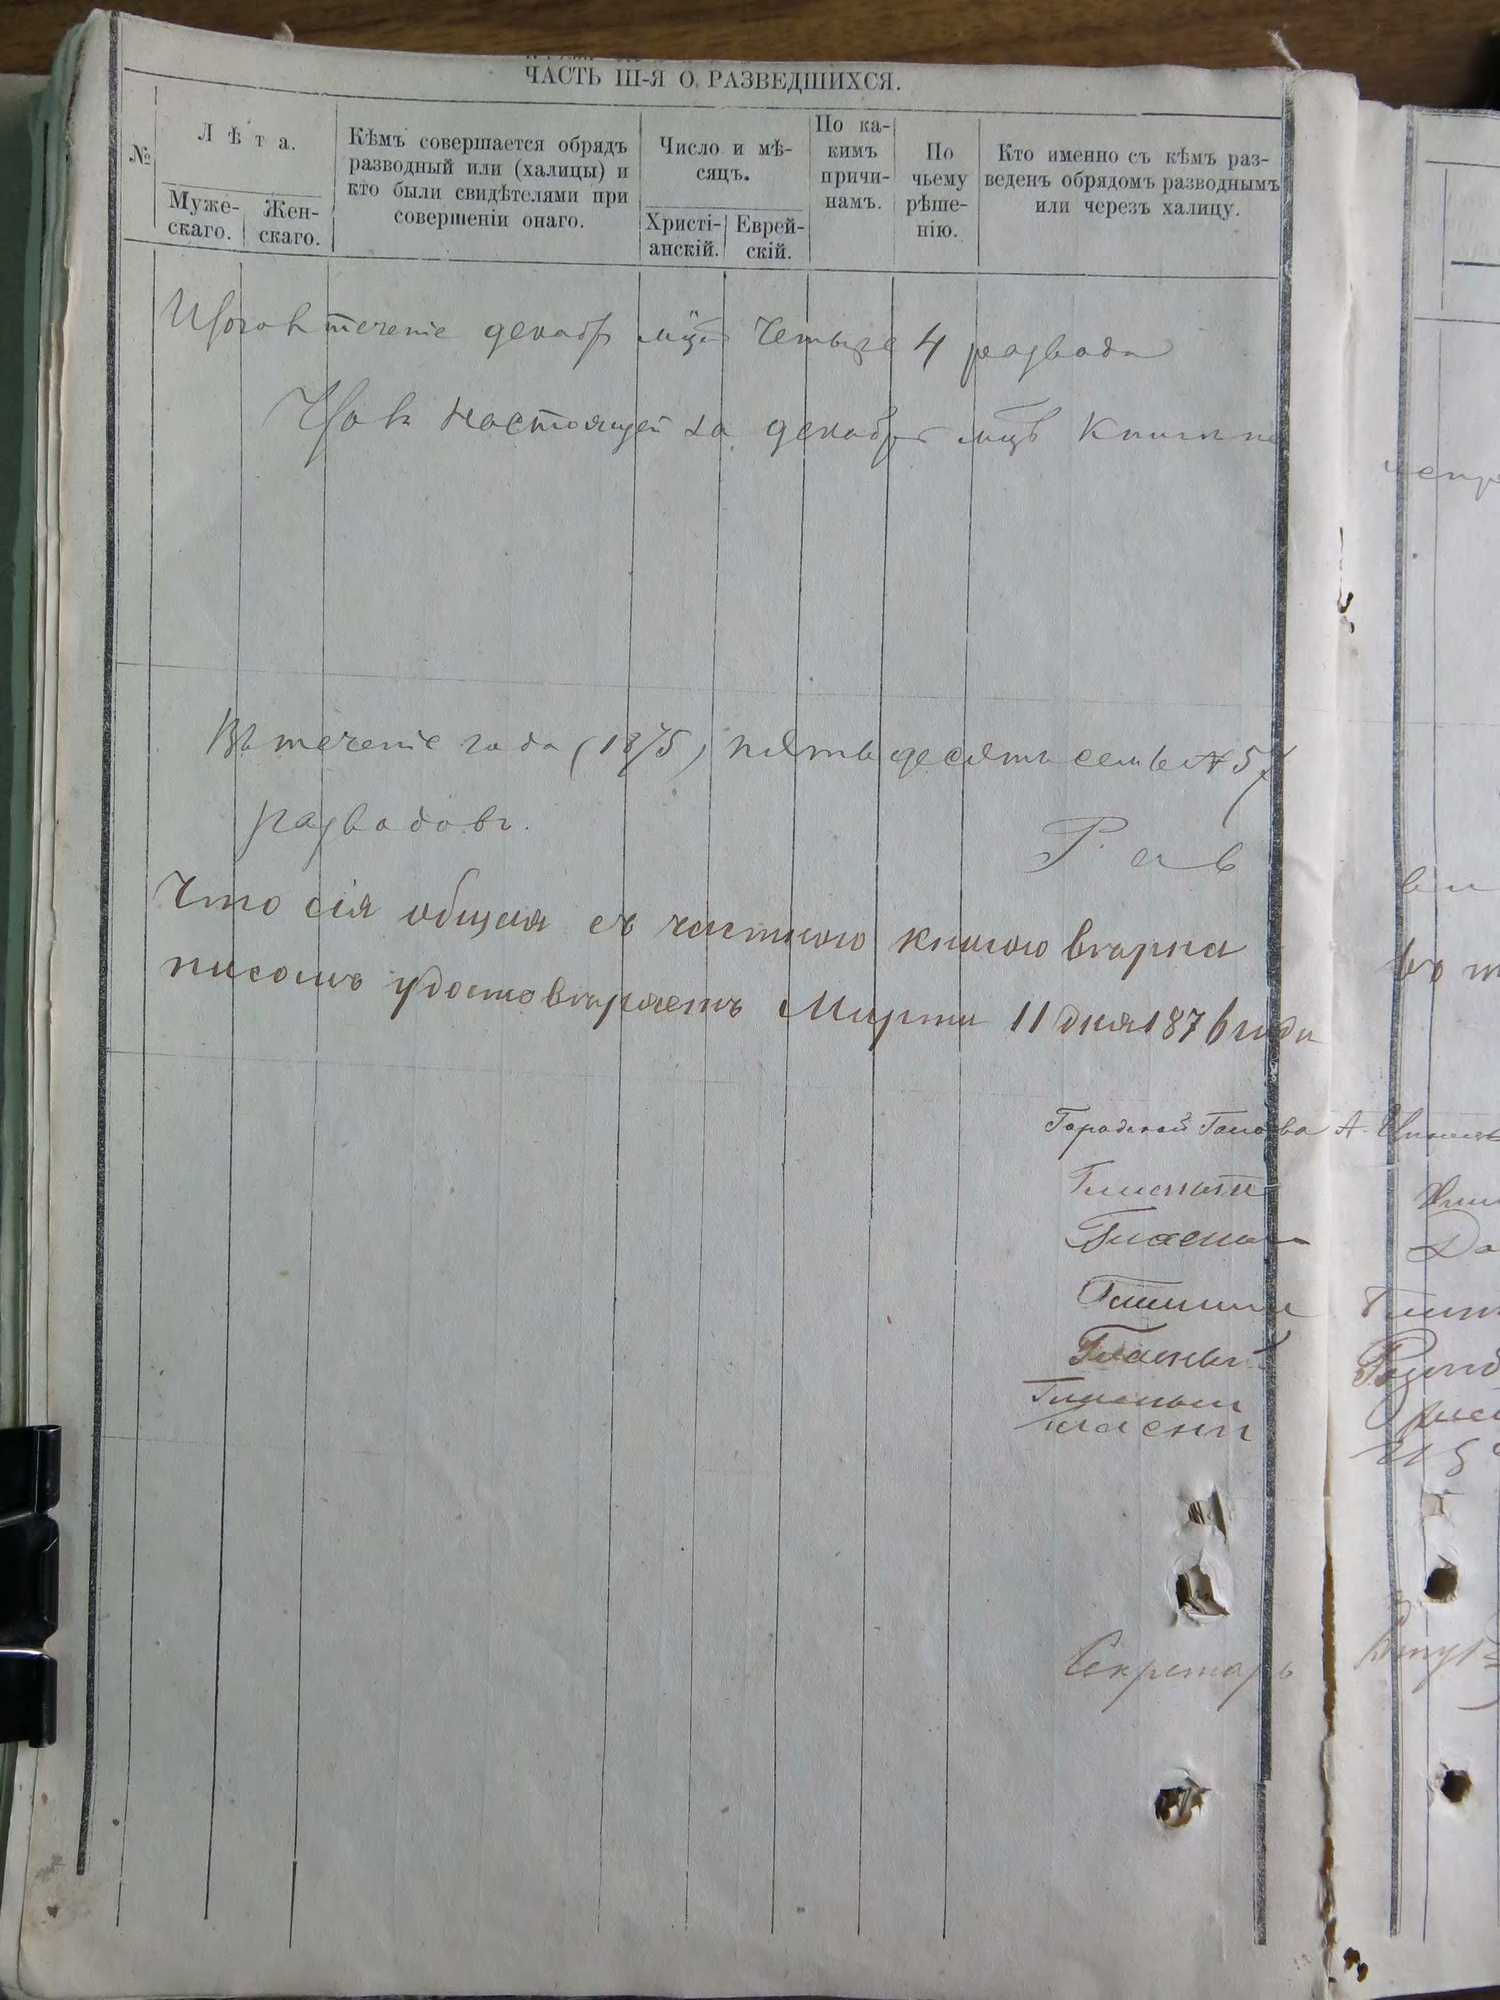 ЧАСТЬ III-Я О РАЗВЕДШИХСЯ.
№
Лѣта.
Муже-
скаго.
Жен-
скаго.
Кѣмъ совершается обрядъ
разводный или (халицы) и
кто были свидѣтелями при
совершеніи онаго.
Число и мѣ-
сяцъ.
Христі-
анскій.
Еврей-
скій.
По ка-
кимъ
причи-
намъ.
По
чьему
рѣше-
нію.
Кто именно съ кѣмъ раз-
веденъ обрядомъ разводнымъ
или черезъ халицу.
Итого въ теченіе декабр мцѣ Четыре 4 развода
Что въ настоящей за декабрь мцъ книги
Въ теченіе года (1875) пятьдесятъ семь № 57
разводовъ.
Рав
Что сія общая съ частною книгою вѣрна
писомъ удостовѣряетъ Марта 11 дня 1876 года
Городской Голова А.
Гласный
Гласный
Гласный
Гласный
Гласный
Гласны
Секретарь